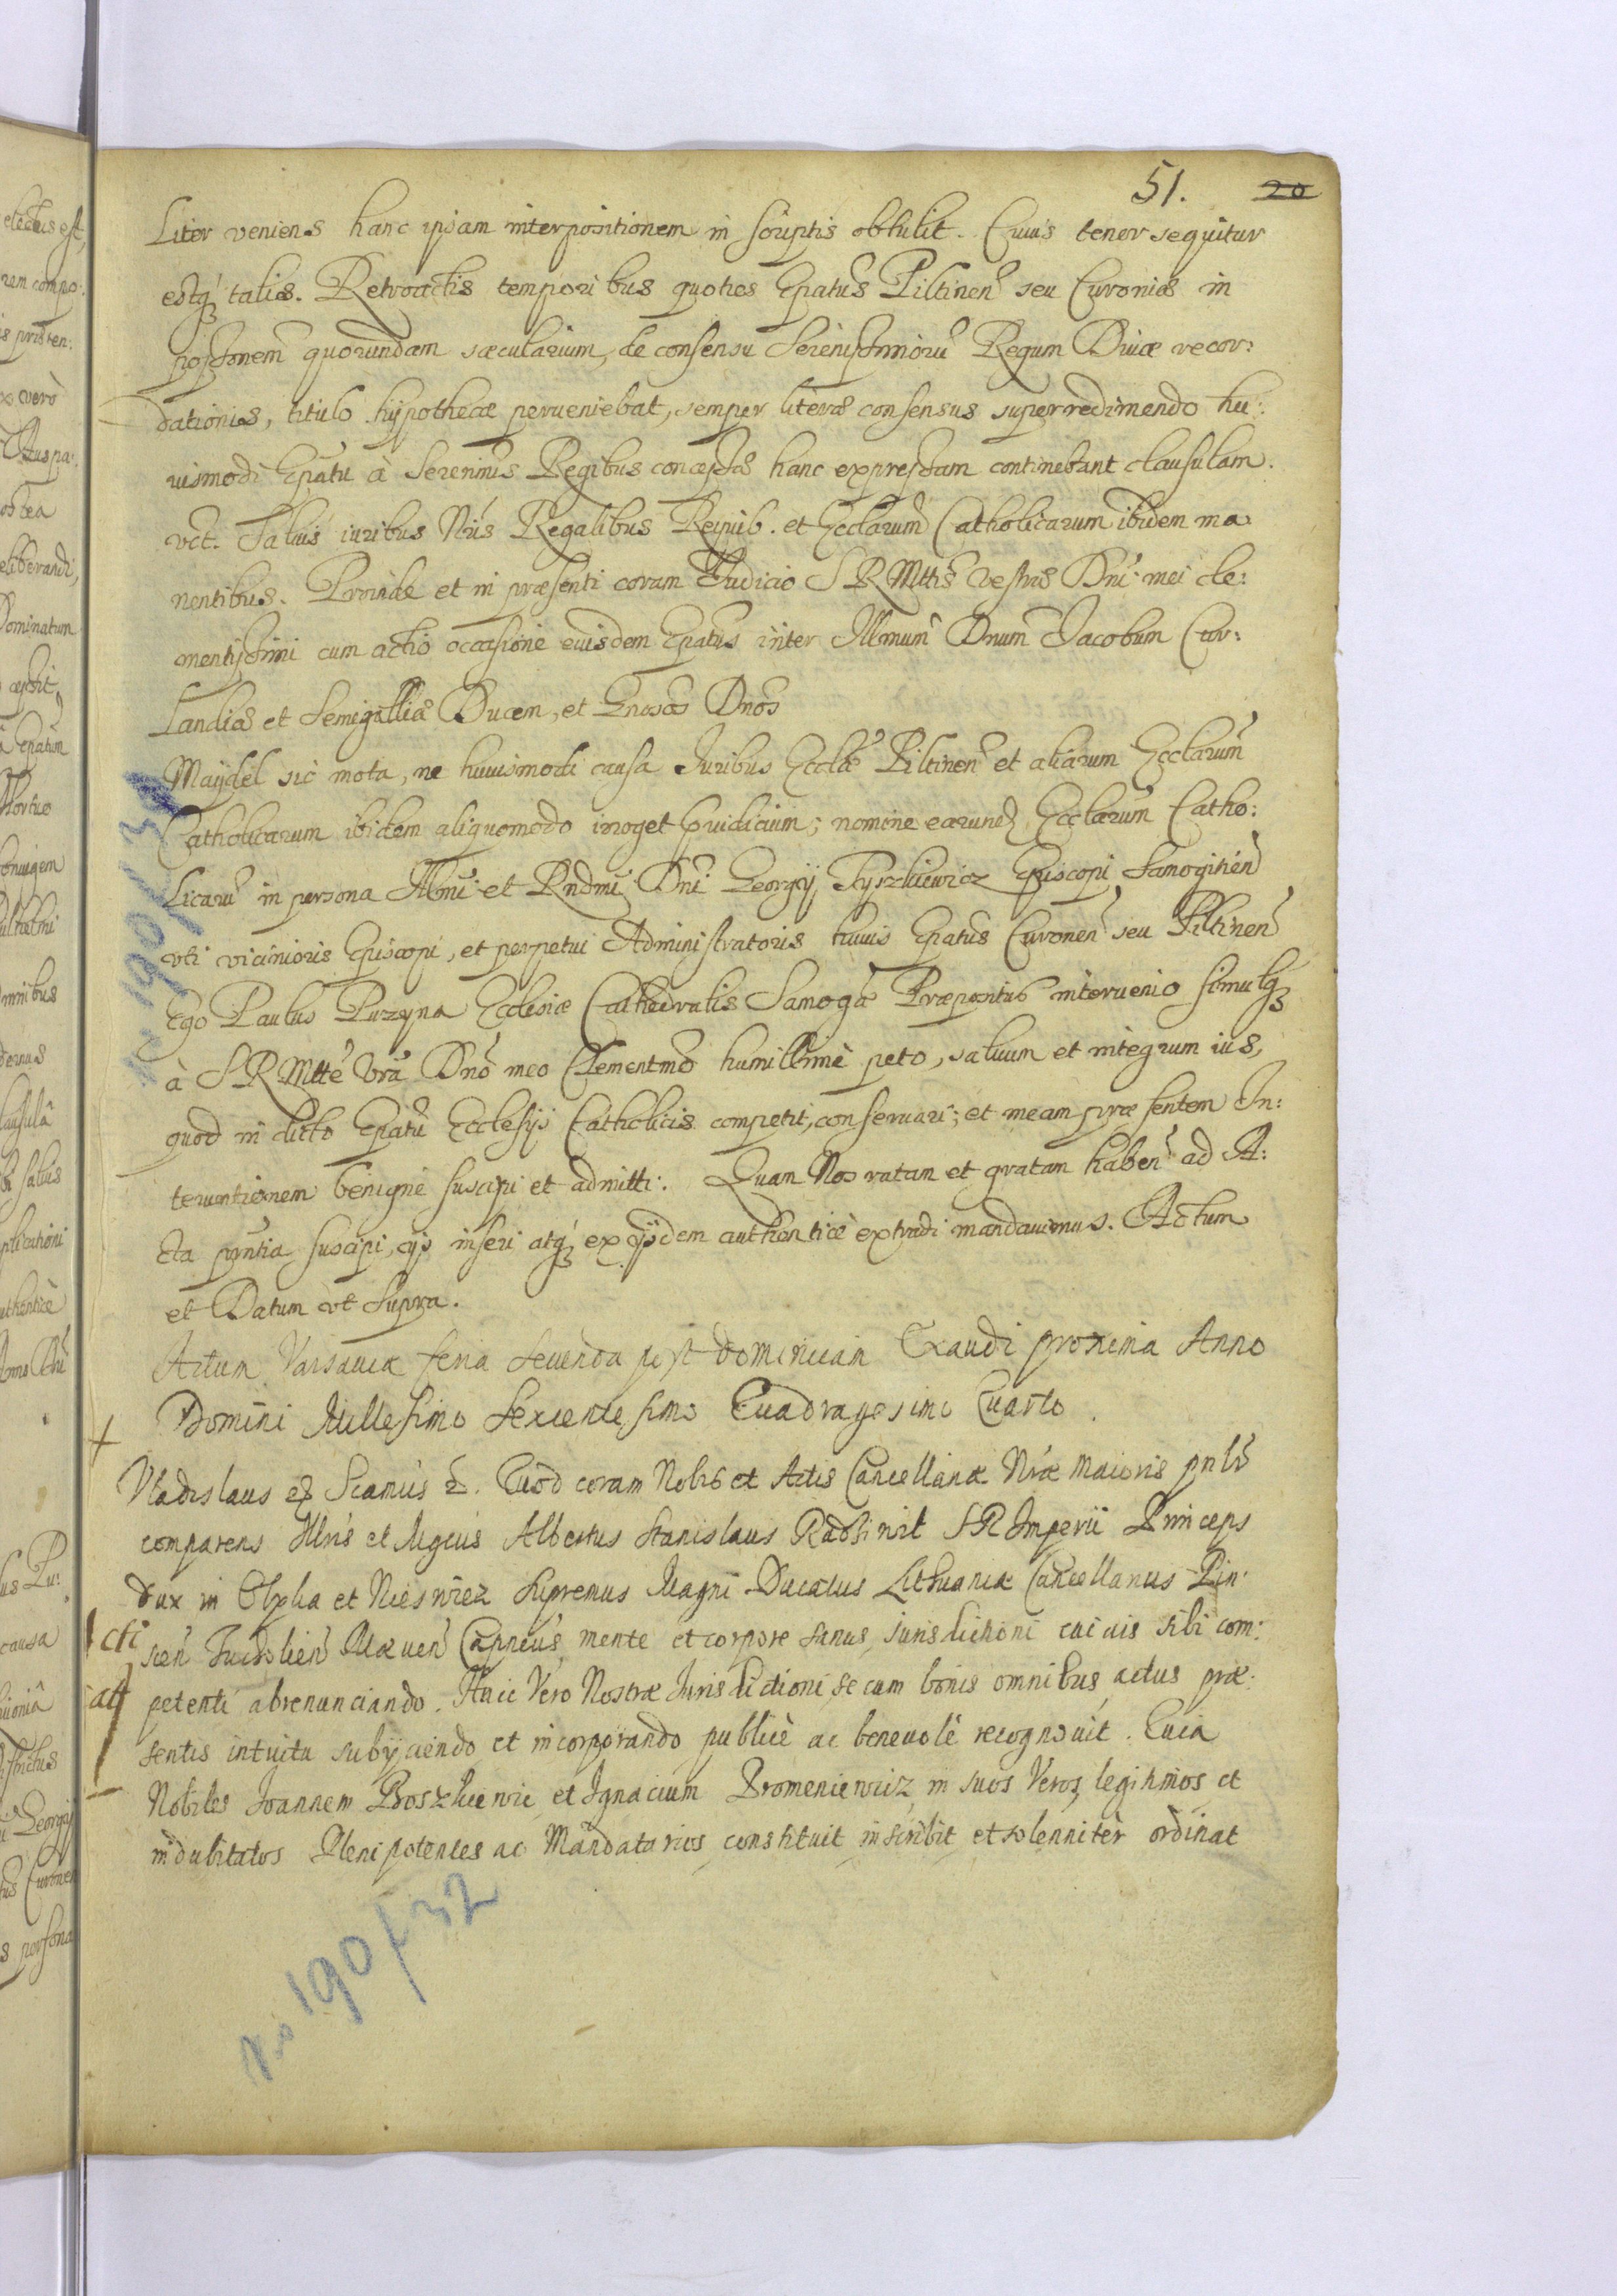 51. 20
liter veniens hanc ipsam interpositionem in scriptis obtulit. Cuius tenor sequitur
estq́ talis. Retroactis temporibus quoties Epatus Piltinen seu Curoniæ in
possionem quorundam sæcularium, de consensu Serenissimorū Regum Diuæ recor:
dationis, titulo hypothecæ perueniebat, semper literæ consensus super redimendo hu:
iusmodi Epatu à Serenmis Regibus concessæ hanc expressam continebant clausulam.
vct. Saluis iuribus Nris Regalibus Reipub. et Ecclarum Catholicarum ibidem ma
nentibus. Proinde et in præsenti coram Judicio S R Mttis Vestræ Dni mei cle:
mentissimi cum actio occasione eiusdem Epatus inter Illmum Dnum Jacobum Cur:
landiæ et Semigalliæ Ducem, et Gnosos Dnos
Maydel sic mota, ne huiusmodi causa Juribus Ecclæ Piltinen et aliarum Ecclarum
Catholicarum ibidem aliquomodo irroget pᵘidicium; nomine earund Ecclarum Catho:
licarū in persona Illmi et Rndmi Dni Georgij Tyszkiewicz Episcopi Samogitien
vti vicinioris Episcopi, et perpetui Administratoris huius Epatus Curonen seu Piltinen
Ego Paulus Puzyna Ecclesiæ Cathedralis Samogæ Præpositus interuenio simulq́
à S R Mtte Vra Dno meo Clementmo humillime peto, saluum et integrum ius,
quod in dicto Epatu Ecclesijs Catholicis competit, conseruari; et meam præsentem In:
teruentionem benigne suscipi et admitti. Quam Nos ratam et gratam haben ad A:
cta pntia suscipi, ijs inseri atq́ ex ijsdem authenticè extradi mandauimus. Actum
et Datum vt Supra.
Actum Varsauiæ feria secunda post dominicam Exaudi proxima Anno
Domini Millesimo Sexcentesimo Quadragesimo Quarto.
Vladislaus eg Scamus &. Quod coram Nobis et Actis Cancellariæ Nræ Maioris pnlr
comparens Illris et Mgcus Albertus Stanislaus Radziwil S R Imperii Princeps
Dux in Olyka et Nieswiez Supremus Magni Ducatus Lithuaniæ Cancellarius Pin:
scen Tucholien Capneus, mente et corpore sanus, iurisdictioni cuiuis sibi com:
petenti abrenunciando. Huic Vero Nostræ Jurisdictioni, se cum bonis omnibus actus præ:
sentis intuitu subijciendo et incorporando publicè ac beneuolè recognouit. Quia
Nobiles Joannem et Ignacium Promieniewicz in suos Veros, legitimos et
indubitatos Plenipotentes ac Mandatarios constituit inscribit et solenniter ordinat
cti
no 190/32